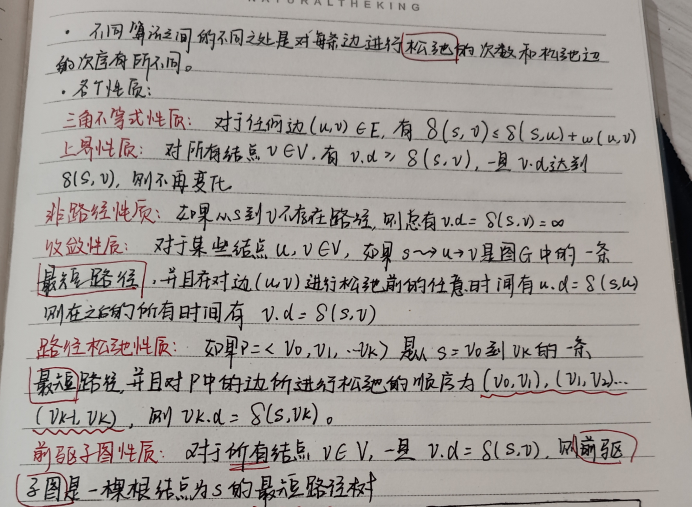 NATURALTHEKING
· 不同算法之间的不同之处是对每条边进行松弛的次数和松弛边
的次序有所不同。
· 各个性质:
三角不等式性质: 对于任何边(u,v)∈E, 有 δ(s,v)≤δ(s,u)+w(u,v)
上界性质: 对所有结点 v∈V. 有 v.d ≥ δ(s,v), 一旦 v.d达到
δ(s,v), 则不再变化
非路径性质: 如果从s到v不存在路径, 则总有v.d=δ(s,v)=∞
收敛性质: 对于某些结点 u,v∈V, 如果 s⤳u→v是图G中的一条
最短路径, 并且在对边(u,v)进行松弛前的任意时间有u.d=δ(s,u)
则在之后的所有时间有 v.d=δ(s,v)
路径松弛性质: 如果P=<v0,v1,…vk> 是从 s=v0到vk的一条
最短路径, 并且对P中的边所进行松弛的顺序为(v0,v1),(v1,v2)...
(vk-1,vk), 则 vk.d=δ(s,vk)。
前驱子图性质: 对于所有结点 v∈V, 一旦 v.d=δ(s,v), 则前驱
子图是一棵根结点为s的最短路径树